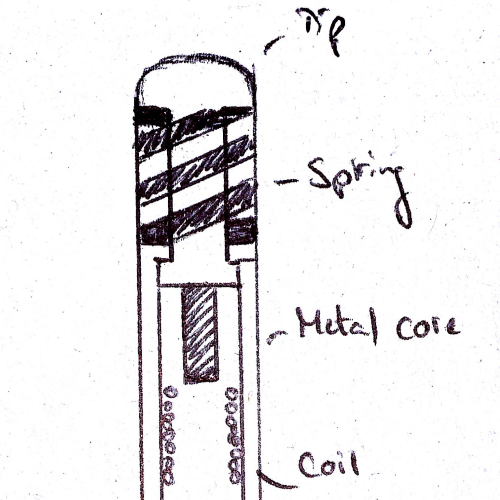 Tip
Spring
Metal core
Coil